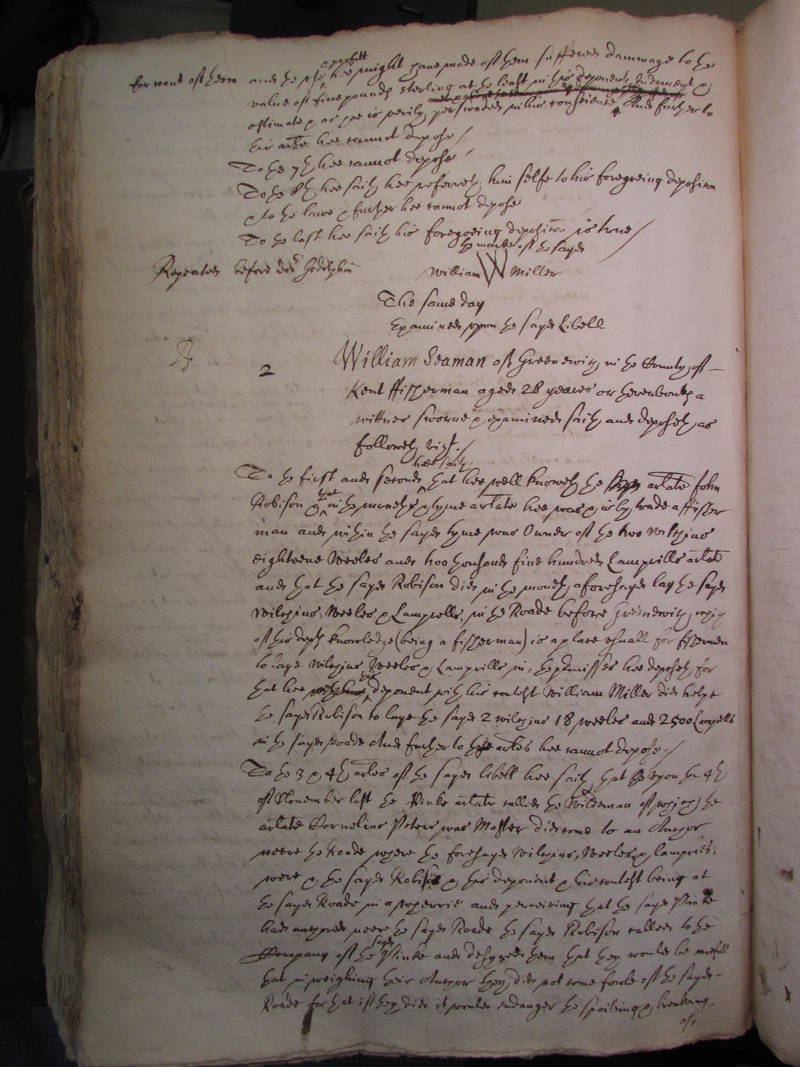 for want of them and the profitt hee might have made of them suffered dammage to the
value of five pounds sterling at the least in his deponents Judgment &
estimate & as hee is verily perswaded in his conscience, And further to
his arlte hee cannot depose /
To the 7th hee cannot depose /
To the 8th hee saith hee referreth him selfe to his foregoeing deposition
& to the lawe & further hee cannot depose
To the last hee saith his foregoeing deposition is true /
the marke of the sayd
Repeated before Godolphin William W Miller
The same day
Examined upon the sayd Libell
2 William Seaman of Greenewich in the County of
Kent ffisherman aged 28 yeares or thereabouts a
wittnes sworne & examined saith and deposeth as
followeth vizt. /
To the first and second hee saith that hee well knoweth the arlate John
Robison & that in the moneth & tyme arlate hee was & is by trade a ffisher
man and within the sayd tyme was Owner of the two wilchins
eighteene Weeles and two thousand five hundred Lamprills arlate
and that the sayd Robison did in the moneth aforesayd lay the sayd
wilchins, Weeles & Lamprells, in the Roade before Greenewich which
of his deposts knowledge (being a fisherman) is a place usuall for fishermen
to laye wilchins Weeles & Lamprills in, the premisses hee deposeth for
that hee this deponent with his contest William Miller did helpe
the sayd Robison to laye the sayd 2 wilchins 18 weeles and 2500 Lamprells
in the sayd Roade And further to these arlates hee cannot depose. /
To the 3 & 4th arlates of the sayd libell hee saith that upon the 4th
of November last the Pinke arlate called the Wildeman of which the
arlate Cornelius Peters was Master did come to an Anchor
neere the Roade where the foresayd wilchins, Weeles & lamprills,
were & the sayd Robison & this deponent & his contest being at
the sayd Roade in a wherrie and perceiving that the sayd Pinke
had anchored neere the sayd Roade the sayd Robison called to the
Company of the sayd Pinke and desyred them that they would be carefull
that in weighing their Anchor they did not come foule of the sayd
Roade for that if they did it would endanger the spoileing & breaking
of